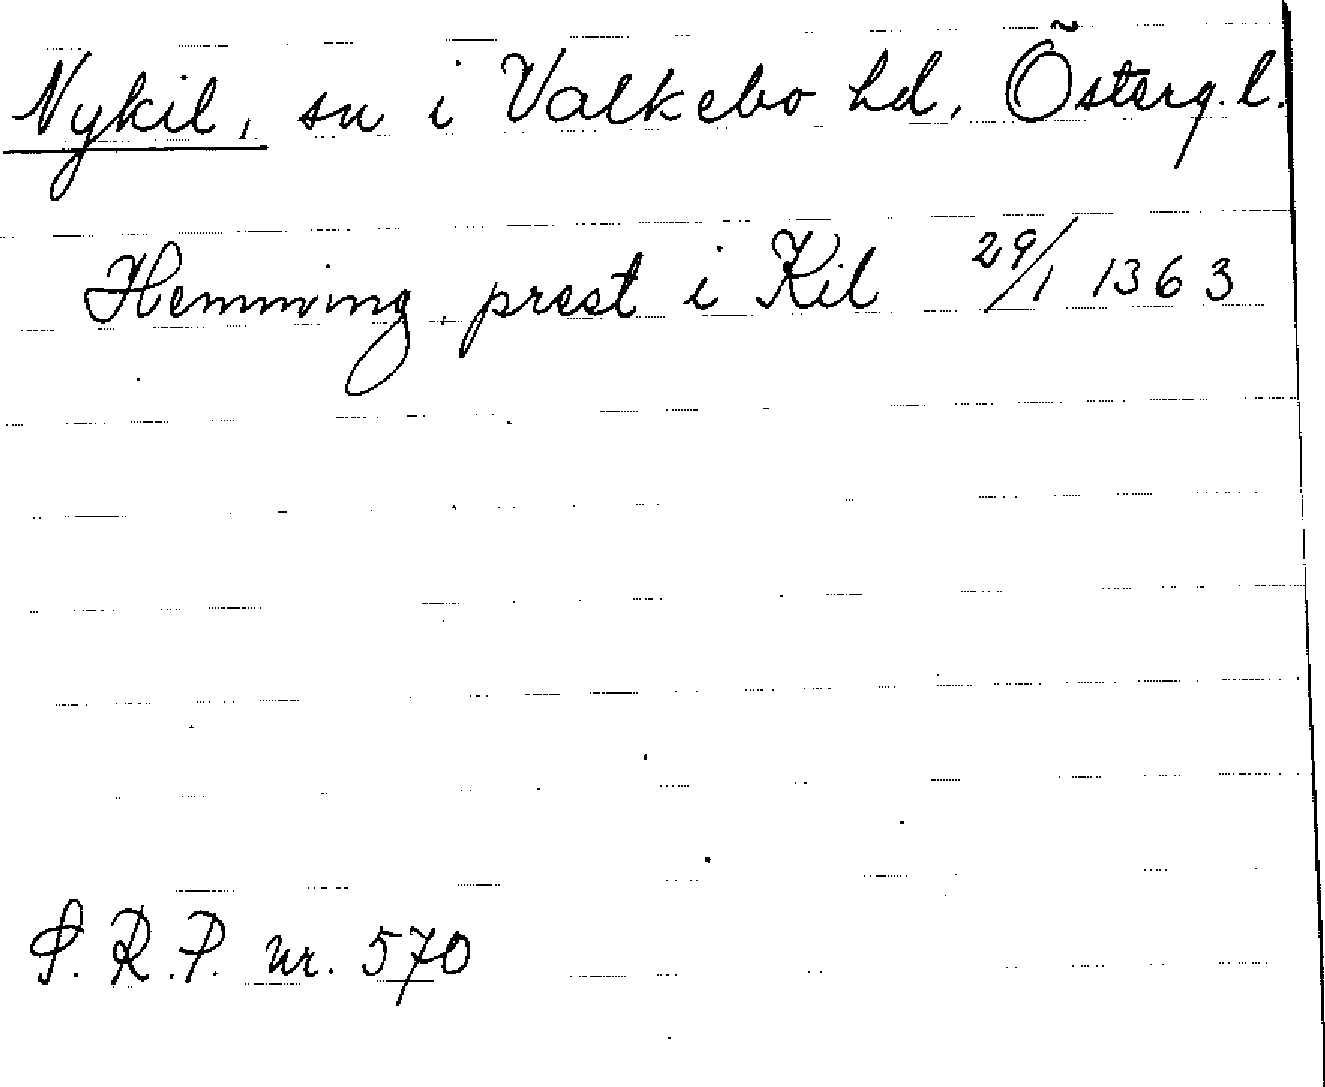 Nykil, sn i Valkebo hd, Österg. l.
Hemming, prest i Kil 29/1 1363
S. R. P. nr. 570